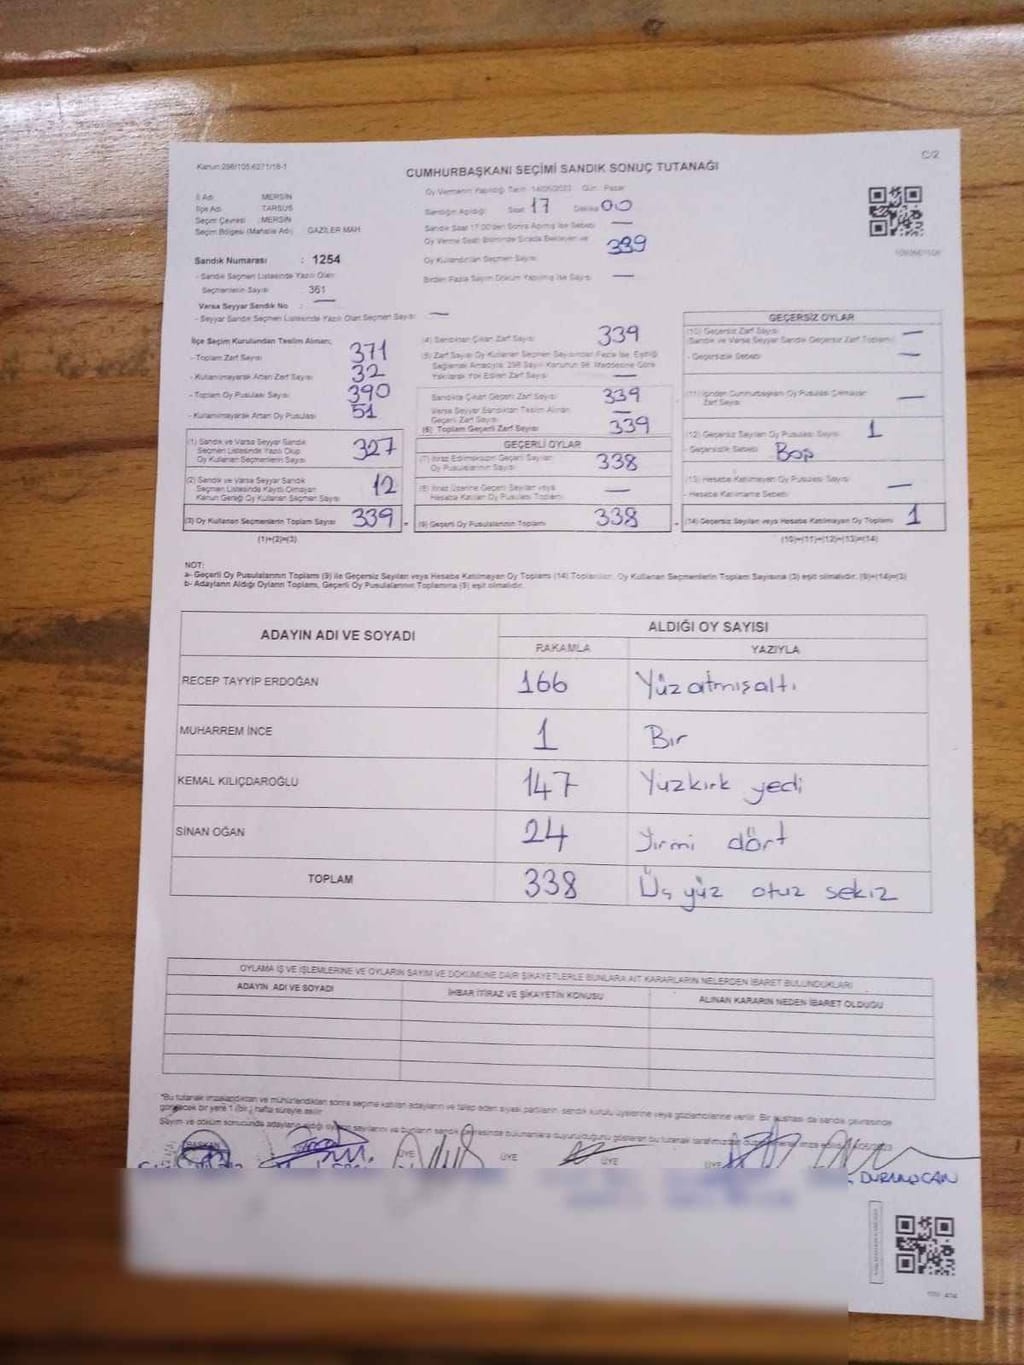 Kanun:298/105-6271/18-1
C/2
CUMHURBAŞKANI SEÇİMİ SANDIK SONUÇ TUTANAĞI
İl Adı : MERSİN
İlçe Adı : TARSUS
Seçim Çevresi : MERSİN
Seçim Bölgesi (Mahalle Adı) : GAZİLER MAH.
Sandık Numarası : 1254
- Sandık Seçmen Listesinde Yazılı Olan
Seçmenlerin Sayısı 361
Varsa Seyyar Sandık No : —
- Seyyar Sandık Seçmen Listesinde Yazılı Olan Seçmen Sayısı : —
Oy Vermenin Yapıldığı Tarih : 14/05/2023 Gün : Pazar
Sandığın Açıldığı Saat 17 Dakika 00
Sandık Saat 17.00'den Sonra Açılmış İse Sebebi —
Oy Verme Saati Bitiminde Sırada Bekleyen ve
Oy Kullandırılan Seçmen Sayısı 339
Birden Fazla Sayım Döküm Yapılmış İse Sayısı —
İlçe Seçim Kurulundan Teslim Alınan;
- Toplam Zarf Sayısı 371
- Kullanılmayarak Artan Zarf Sayısı 32
- Toplam Oy Pusulası Sayısı 390
- Kullanılmayarak Artan Oy Pusulası 51
(1) Sandık ve Varsa Seyyar Sandık
Seçmen Listesinde Yazılı Olup
Oy Kullanan Seçmenlerin Sayısı 327
(2) Sandık ve Varsa Seyyar Sandık
Seçmen Listesinde Kayıtlı Olmayan
Kanun Gereği Oy Kullanan Seçmen Sayısı 12
(3) Oy Kullanan Seçmenlerin Toplam Sayısı 339
(1)+(2)=(3)
(4) Sandıktan Çıkan Zarf Sayısı 339
(5) Zarf Sayısı Oy Kullanan Seçmen Sayısından Fazla İse, Eşitliği
Sağlamak Amacıyla, 298 Sayılı Kanunun 98. Maddesine Göre
Yakılarak Yok Edilen Zarf Sayısı —
Sandıkta Çıkan Geçerli Zarf Sayısı 339
Varsa Seyyar Sandıktan Teslim Alınan
Geçerli Zarf Sayısı —
(6) Toplam Geçerli Zarf Sayısı 339
GEÇERLİ OYLAR
(7) İtiraz Edilmeksizin Geçerli Sayılan
Oy Pusulalarının Sayısı 338
(8) İtiraz Üzerine Geçerli Sayılan veya
Hesaba Katılan Oy Pusulası Toplamı —
(9) Geçerli Oy Pusulalarının Toplamı 338
GEÇERSİZ OYLAR
(10) Geçersiz Zarf Sayısı
(Sandık ve Varsa Seyyar Sandık Geçersiz Zarf Toplamı) —
- Geçersizlik Sebebi —
(11) İçinden Cumhurbaşkanı Oy Pusulası Çıkmayan
Zarf Sayısı —
(12) Geçersiz Sayılan Oy Pusulası Sayısı 1
- Geçersizlik Sebebi Boş
(13) Hesaba Katılmayan Oy Pusulası Sayısı —
- Hesaba Katılmama Sebebi
(14) Geçersiz Sayılan veya Hesaba Katılmayan Oy Toplamı 1
(10)+(11)+(12)+(13)=(14)
NOT:
a- Geçerli Oy Pusulalarının Toplamı (9) ile Geçersiz Sayılan veya Hesaba Katılmayan Oy Toplamı (14) Toplamları, Oy Kullanan Seçmenlerin Toplam Sayısına (3) eşit olmalıdır. (9)+(14)=(3)
b- Adayların Aldığı Oyların Toplamı, Geçerli Oy Pusulalarının Toplamına (9) eşit olmalıdır.
ADAYIN ADI VE SOYADI
ALDIĞI OY SAYISI
RAKAMLA YAZIYLA
RECEP TAYYİP ERDOĞAN 166 Yüzatmışaltı
MUHARREM İNCE 1 Bir
KEMAL KILIÇDAROĞLU 147 Yüzkırk yedi
SİNAN OĞAN 24 Yirmi dört
TOPLAM 338 Üç yüz otuz sekiz
OYLAMA İŞ VE İŞLEMLERİNE VE OYLARIN SAYIM VE DÖKÜMÜNE DAİR ŞİKAYETLERLE BUNLARA AİT KARARLARIN NELERDEN İBARET BULUNDUKLARI
ADAYIN ADI VE SOYADI
İHBAR İTİRAZ VE ŞİKAYETİN KONUSU
ALINAN KARARIN NEDEN İBARET OLDUĞU
*Bu tutanak imzalandıktan ve mühürlendikten sonra seçime katılan adayların ve talep eden siyasi partilerin, sandık kurulu üyelerine veya gözlemcilerine verilir. Bir nüshası da sandık çevresinde
görülecek bir yere 1 (bir) hafta süreyle asılır.
BAŞKAN
ÜYE
ÜYE
ÜYE
ÜYE
DURMUŞCAN